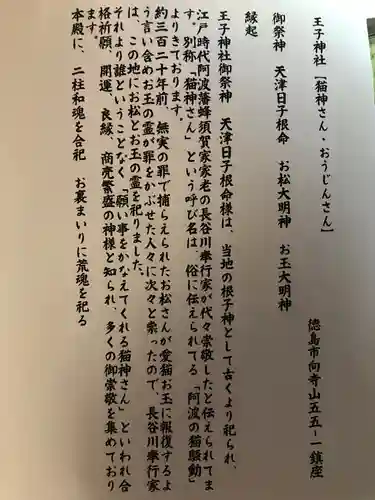 王子神社 [猫神さん・おうじんさん]
徳島市向寺山五五ー一鎮座
御祭神 天津日子根命 お松大明神 お玉大明神
縁起
王子神社御祭神 天津日子根命様は、当地の根子神として古くより祀られ、
江戸時代阿波藩蜂須賀家家老の長谷川奉行家が代々崇敬したと伝えられてま
す。別称「猫神さん」という呼び名は、俗に伝えられてる「阿波の猫騒動」
よりきております。
約三百二十年前、無実の罪で捕らえられたお松さんが愛猫お玉に報復するよ
う言い含めお玉の霊が罪をかぶせた人々に次々と祟ったので、長谷川奉行家
は、この地にお松とお玉の霊を祀りました。
それより誰ということなく「願い事をかなえてくれる猫神さん」といわれ合
格祈願、開運、良縁、商売繁盛の神様と知られ、多くの御崇敬を集めており
ます。
本殿に、二柱和魂を合祀 お裏まいりに荒魂を祀る